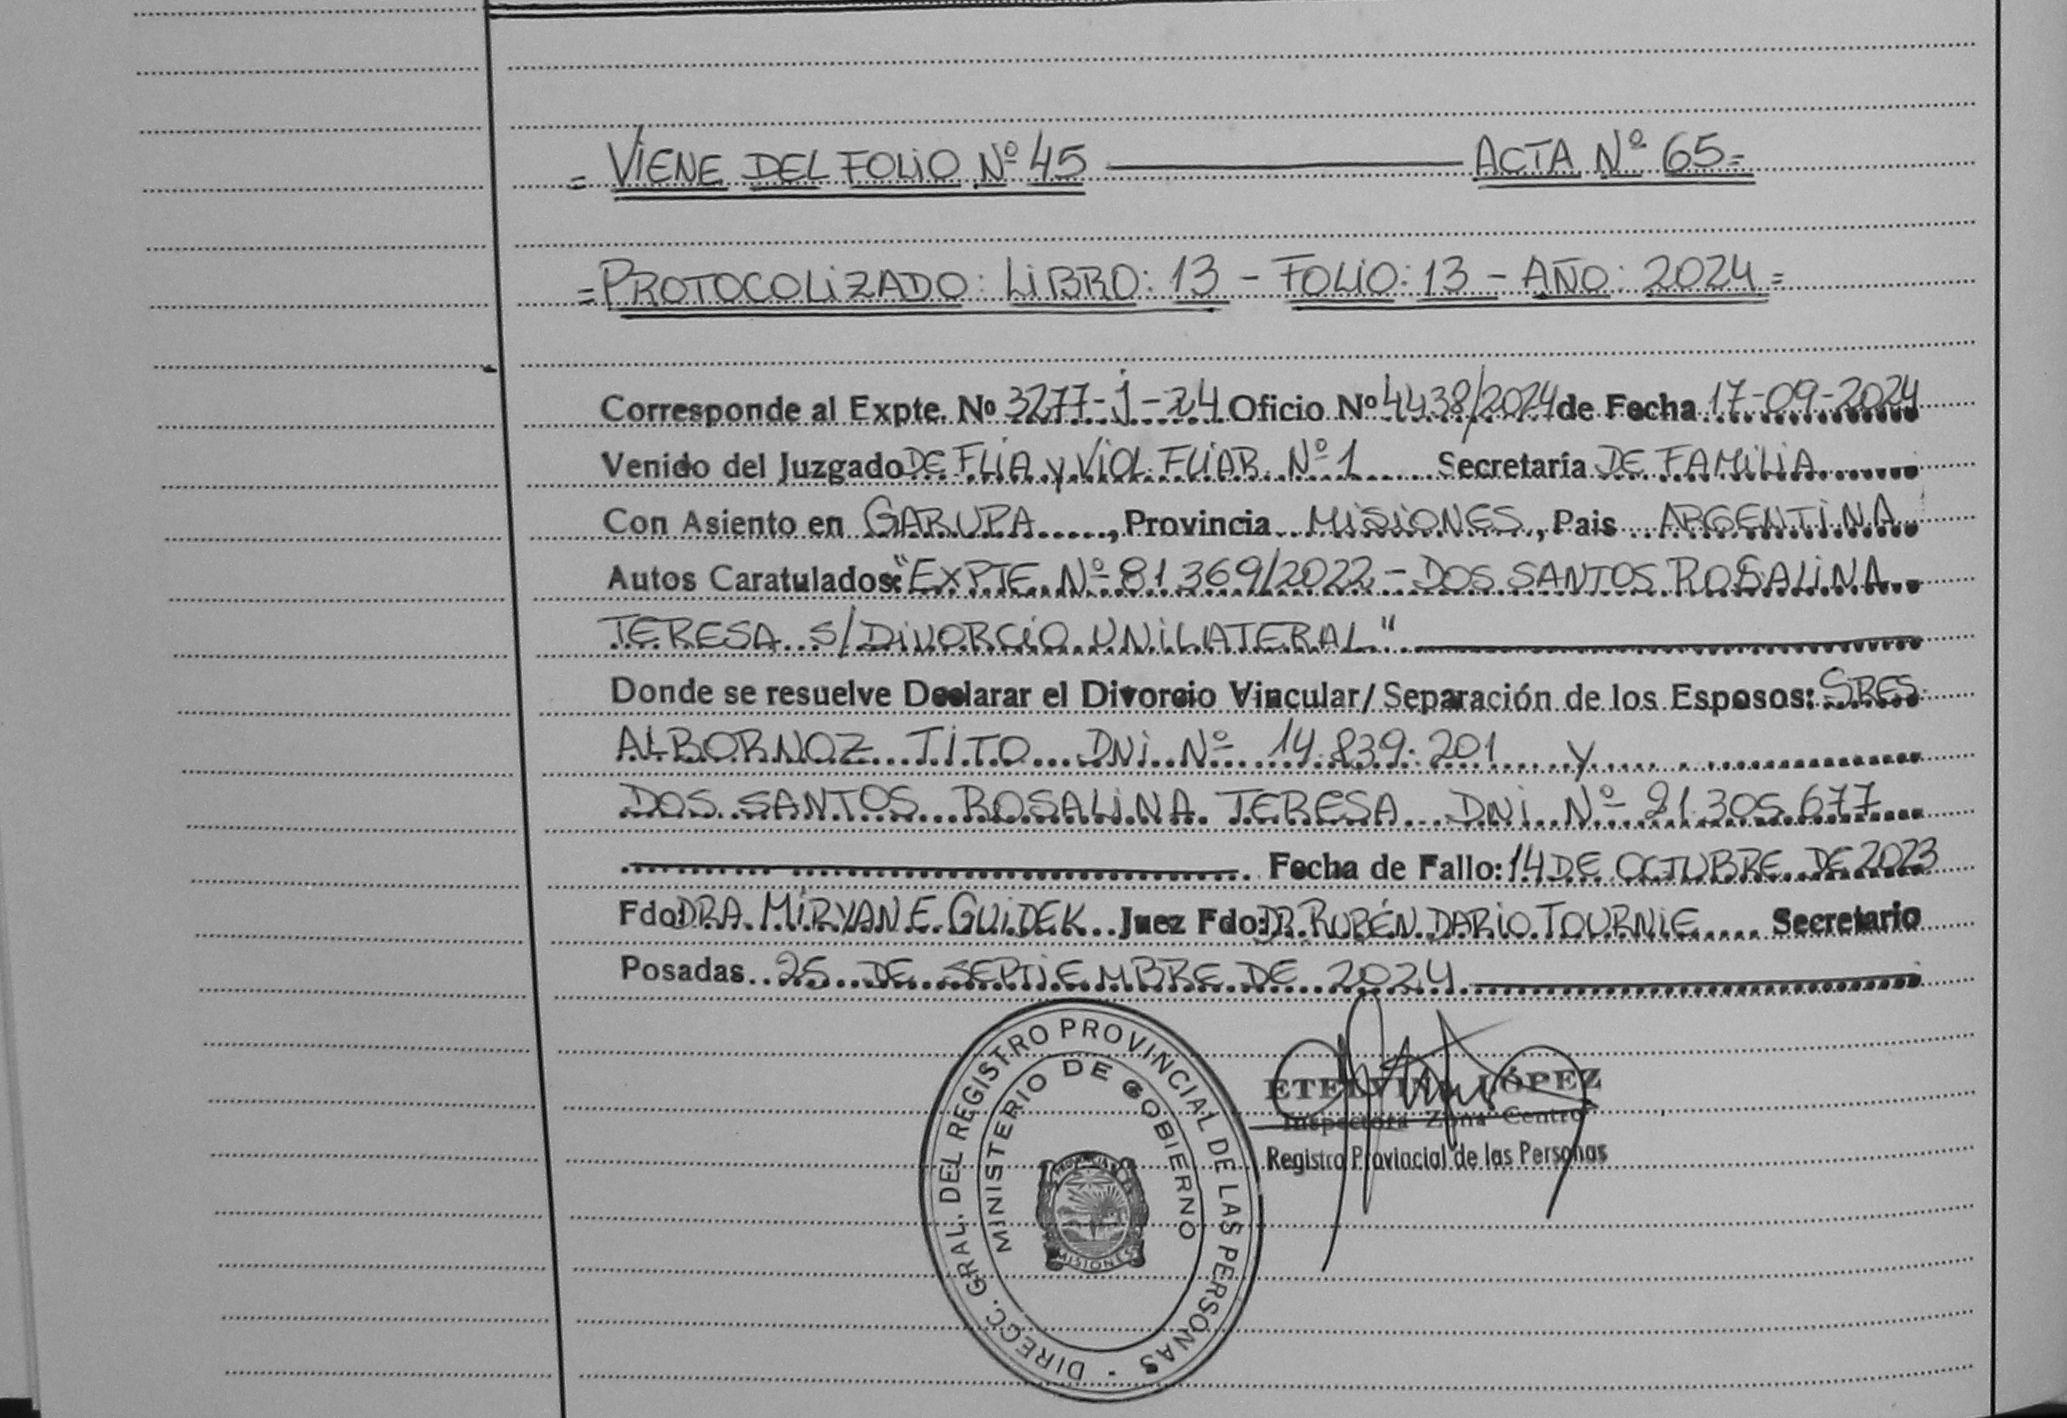 = VIENE DEL FOLIO Nº 45 ACTA Nº 65=
=PROTOCOLIZADO: LIBRO: 13 - FOLIO: 13 - AÑO: 2024=
Corresponde al Expte. Nº 3277-J-24 Oficio Nº 4438/2024 de Fecha 17-09-2024
Venido del Juzgado DE FLIA y VIOL. FLIAR. Nº 1 Secretaría DE FAMILIA
Con Asiento en GARUPA, Provincia MISIONES, Pais ARGENTINA
Autos Caratulados: "EXPTE. Nº 81369/2022 - DOS SANTOS ROSALINA
TERESA S/DIVORCIO UNILATERAL"
Donde se resuelve Declarar el Divorcio Vincular/Separación de los Esposos: SRES
ALBORNOZ TITO DNI Nº 14.839.201 y
DOS SANTOS ROSALINA TERESA DNI Nº 21.305.677
Fecha de Fallo: 14 DE OCTUBRE DE 2023
Fdo DRA. MIRYAN E. GUIDEK Juez Fdo: DR. RUBÉN DARIO TOURNIE Secretario
Posadas 25 DE SEPTIEMBRE DE 2024
DIRECC. GRAL. DEL REGISTRO PROVINCIAL DE LAS PERSONAS
MINISTERIO DE GOBIERNO
PROVINCIA
MISIONES
ETELVINA LÓPEZ
Inspectora Zona Centro
Registro Provincial de las Personas